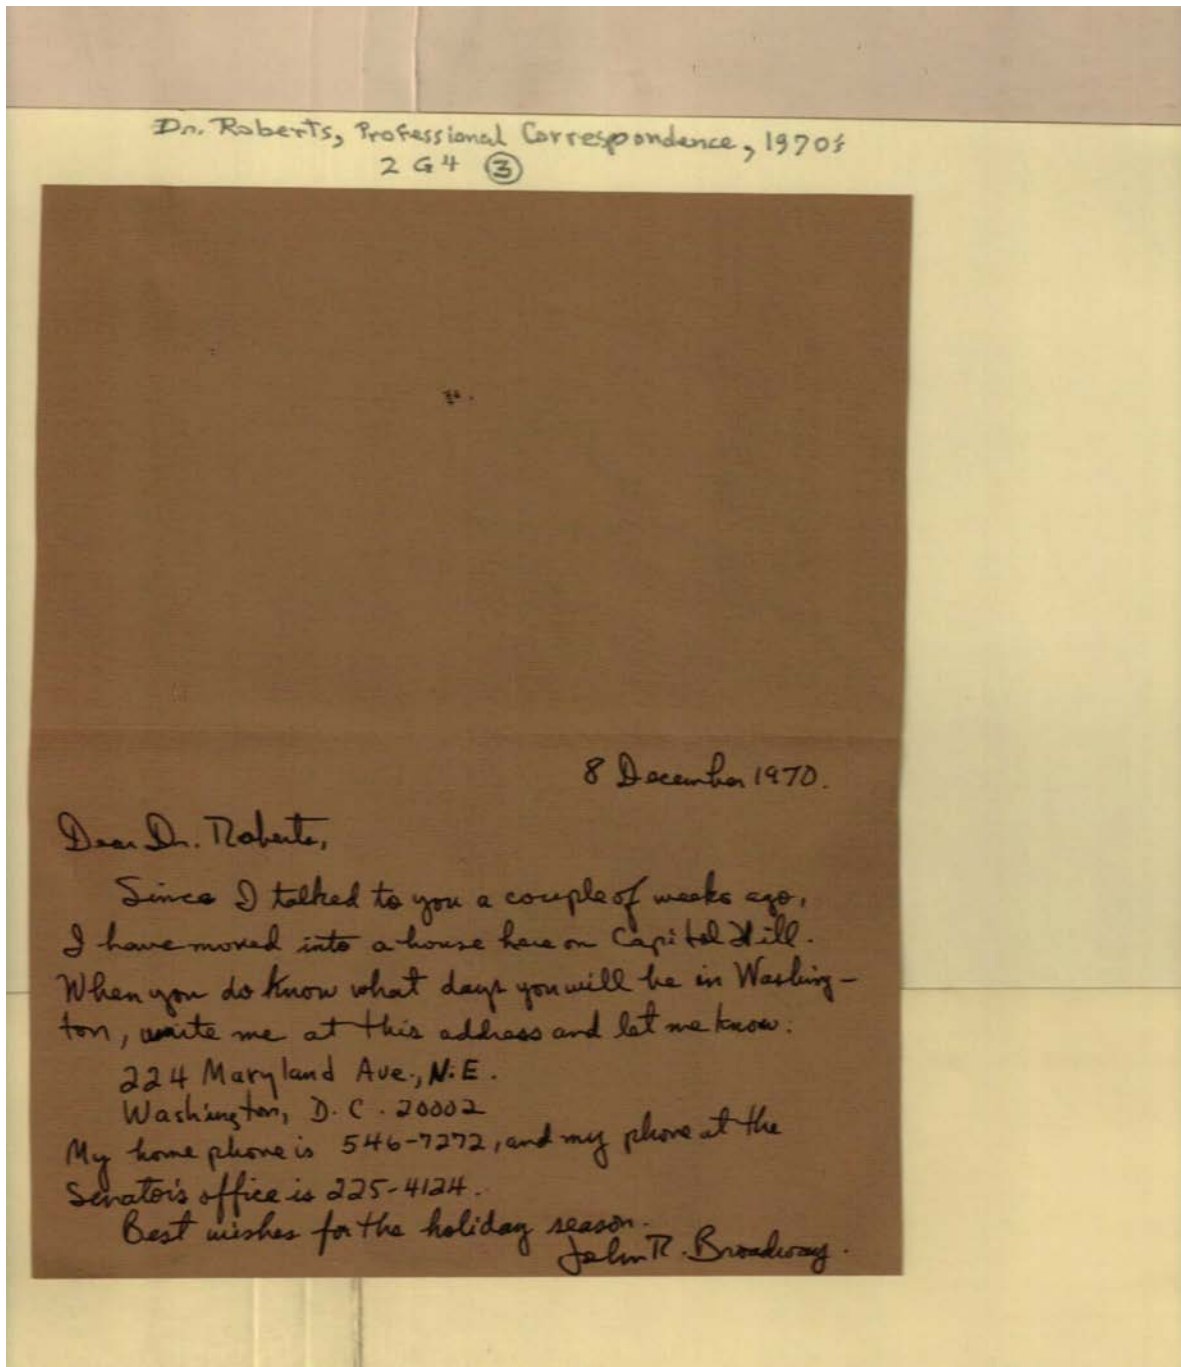 Dr. Roberts, Professional Correspondence, 1970's
2 G4 ③
8 December 1970.
Dear Dr. Roberts,
Since I talked to you a couple of weeks ago,
I have moved into a house here on Capitol Hill.
When you do know what days you will be in Washing-
ton, write me at this address and let me know:
224 Maryland Ave., N.E.
Washington, D.C. 20002
My home phone is 546-7272, and my phone at the
Senator's office is 225-4124.
Best wishes for the holiday season.
John R. Broadway.